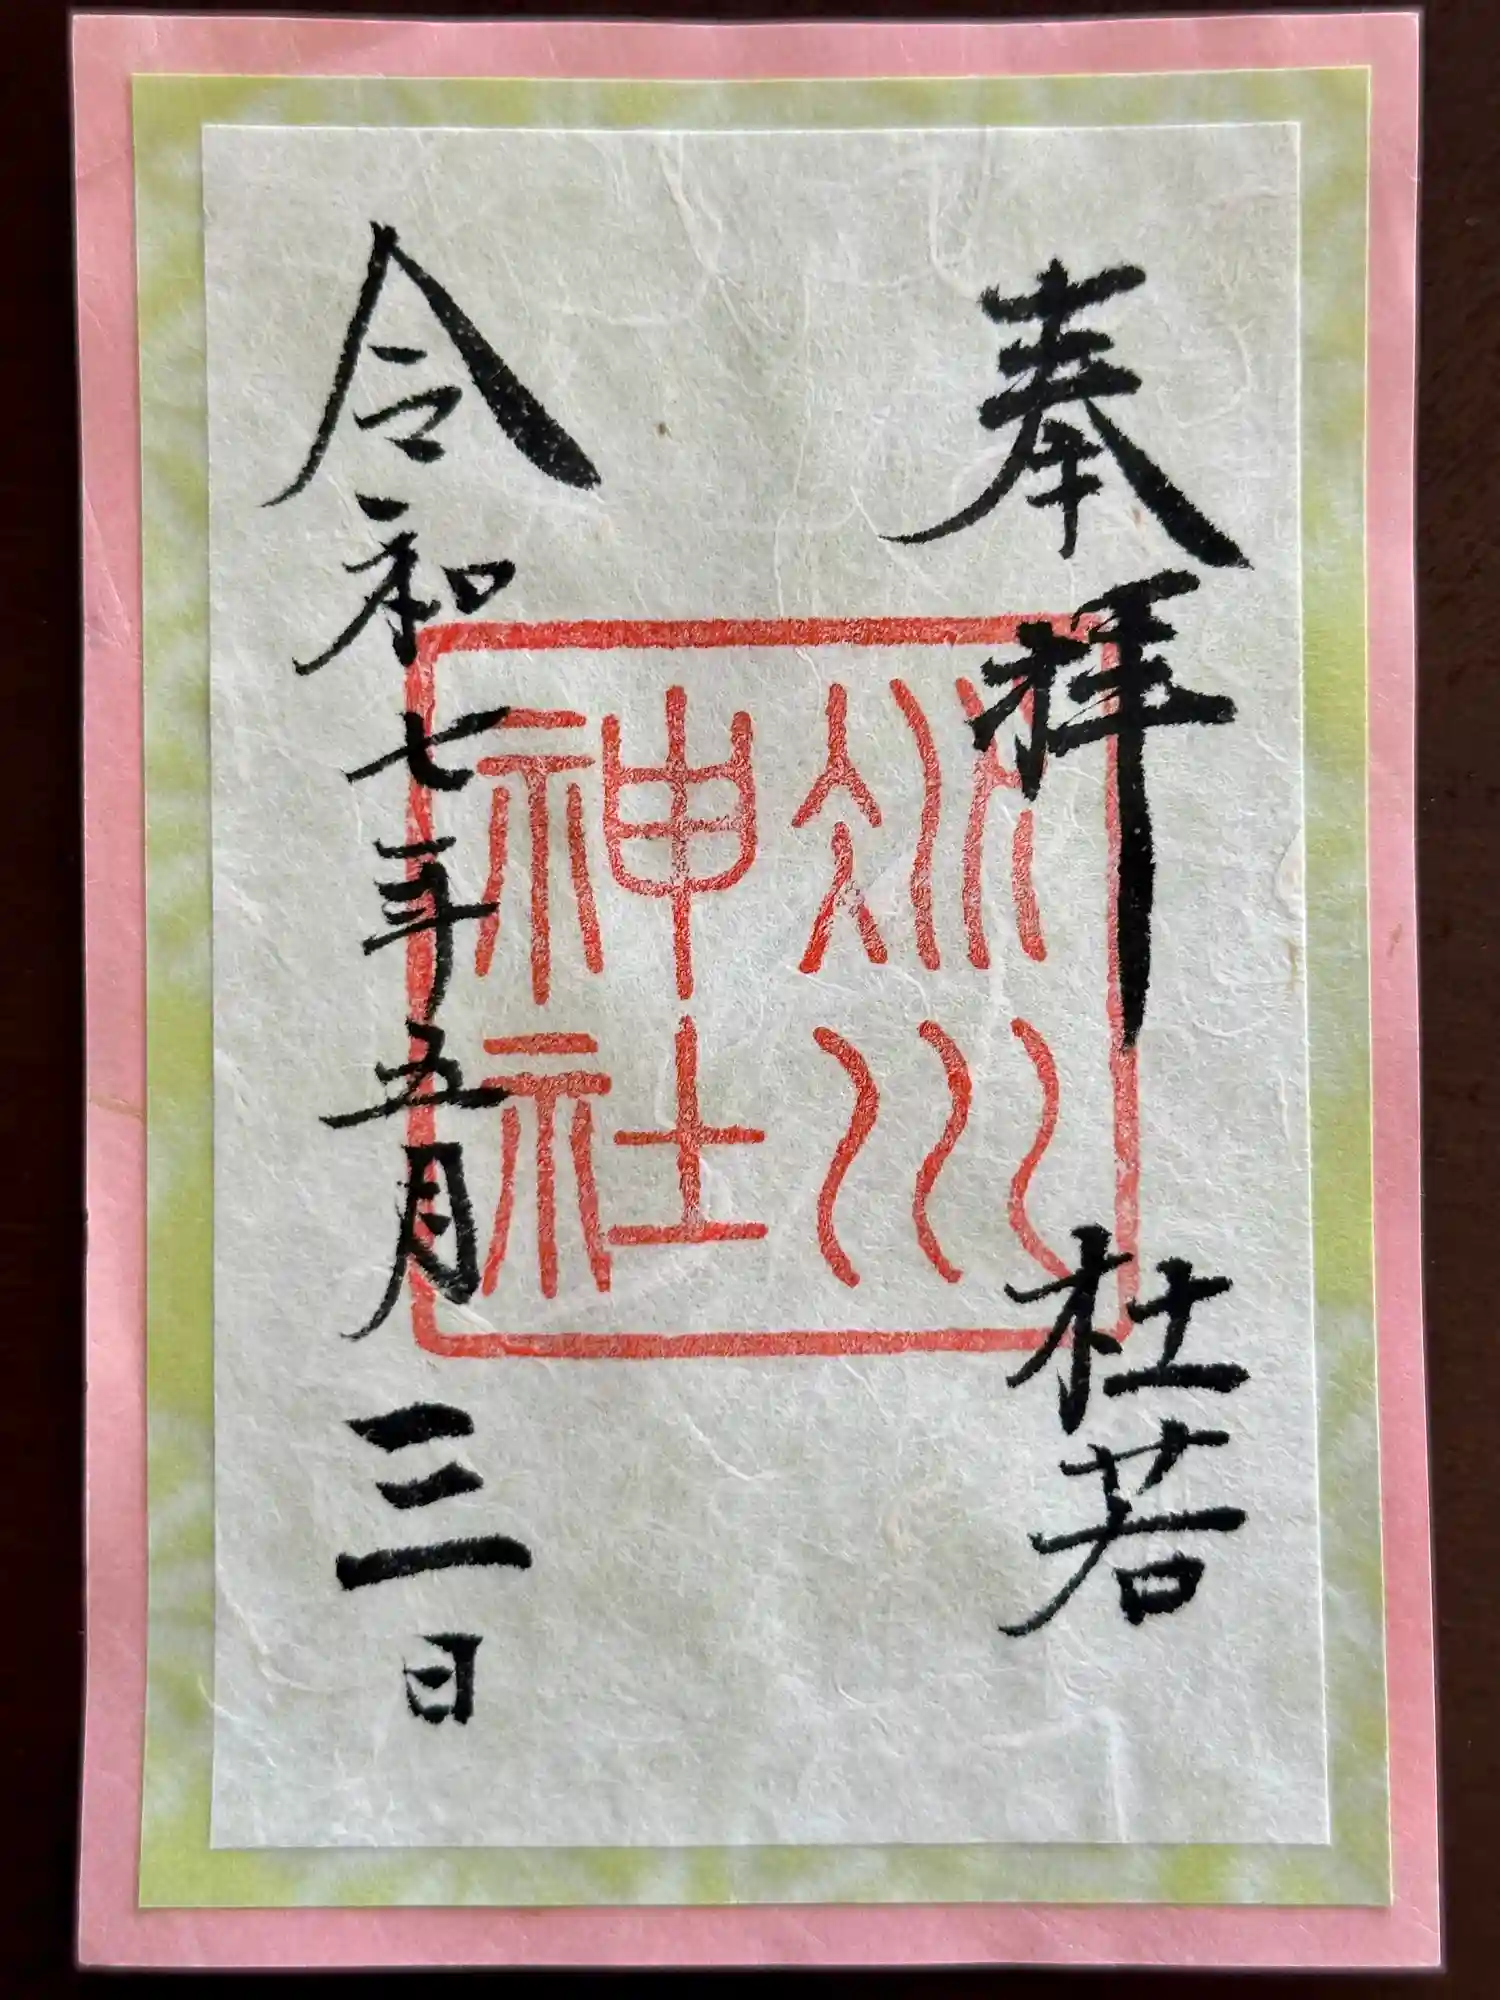 奉拝 杜若
冰川
神社
令和七年五月三日